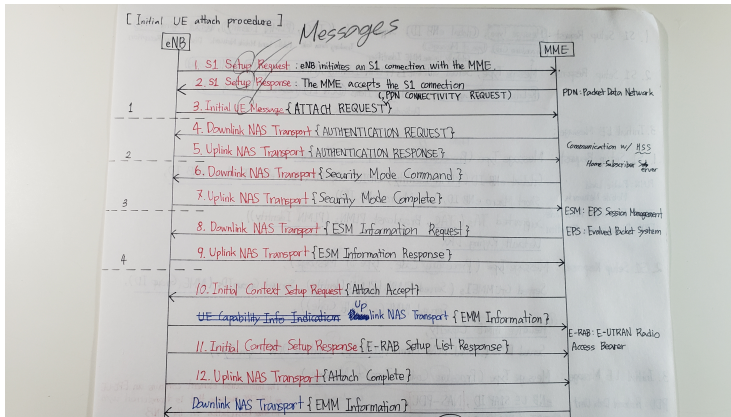 [ Initial UE attach procedure ]
Messages
eNB
MME
1. S1 Setup Request : eNB initiates an S1 connection with the MME.
2. S1 Setup Response : The MME accepts the S1 connection
PDN : Packet Data Network
(PDN CONNECTIVITY REQUEST)
1
3. Initial UE Message {ATTACH REQUEST}
4. Downlink NAS Transport {AUTHENTICATION REQUEST}
5. Uplink NAS Transport {AUTHENTICATION RESPONSE}
Communication w/ HSS
2
6. Downlink NAS Transport {Security Mode Command}
Home Subscriber Server
7. Uplink NAS Transport {Security Mode Complete}
3
ESM : EPS Session Management
8. Downlink NAS Transport {ESM Information Request}
EPS : Evolved Packet System
9. Uplink NAS Transport {ESM Information Response}
4
10. Initial Context Setup Request {Attach Accept}
UE Capability Info Indication Uplink NAS Transport {EMM Information}
E-RAB : E-UTRAN Radio
Access Bearer
11. Initial Context Setup Response {E-RAB Setup List Response}
12. Uplink NAS Transport {Attach Complete}
Downlink NAS Transport {EMM Information}